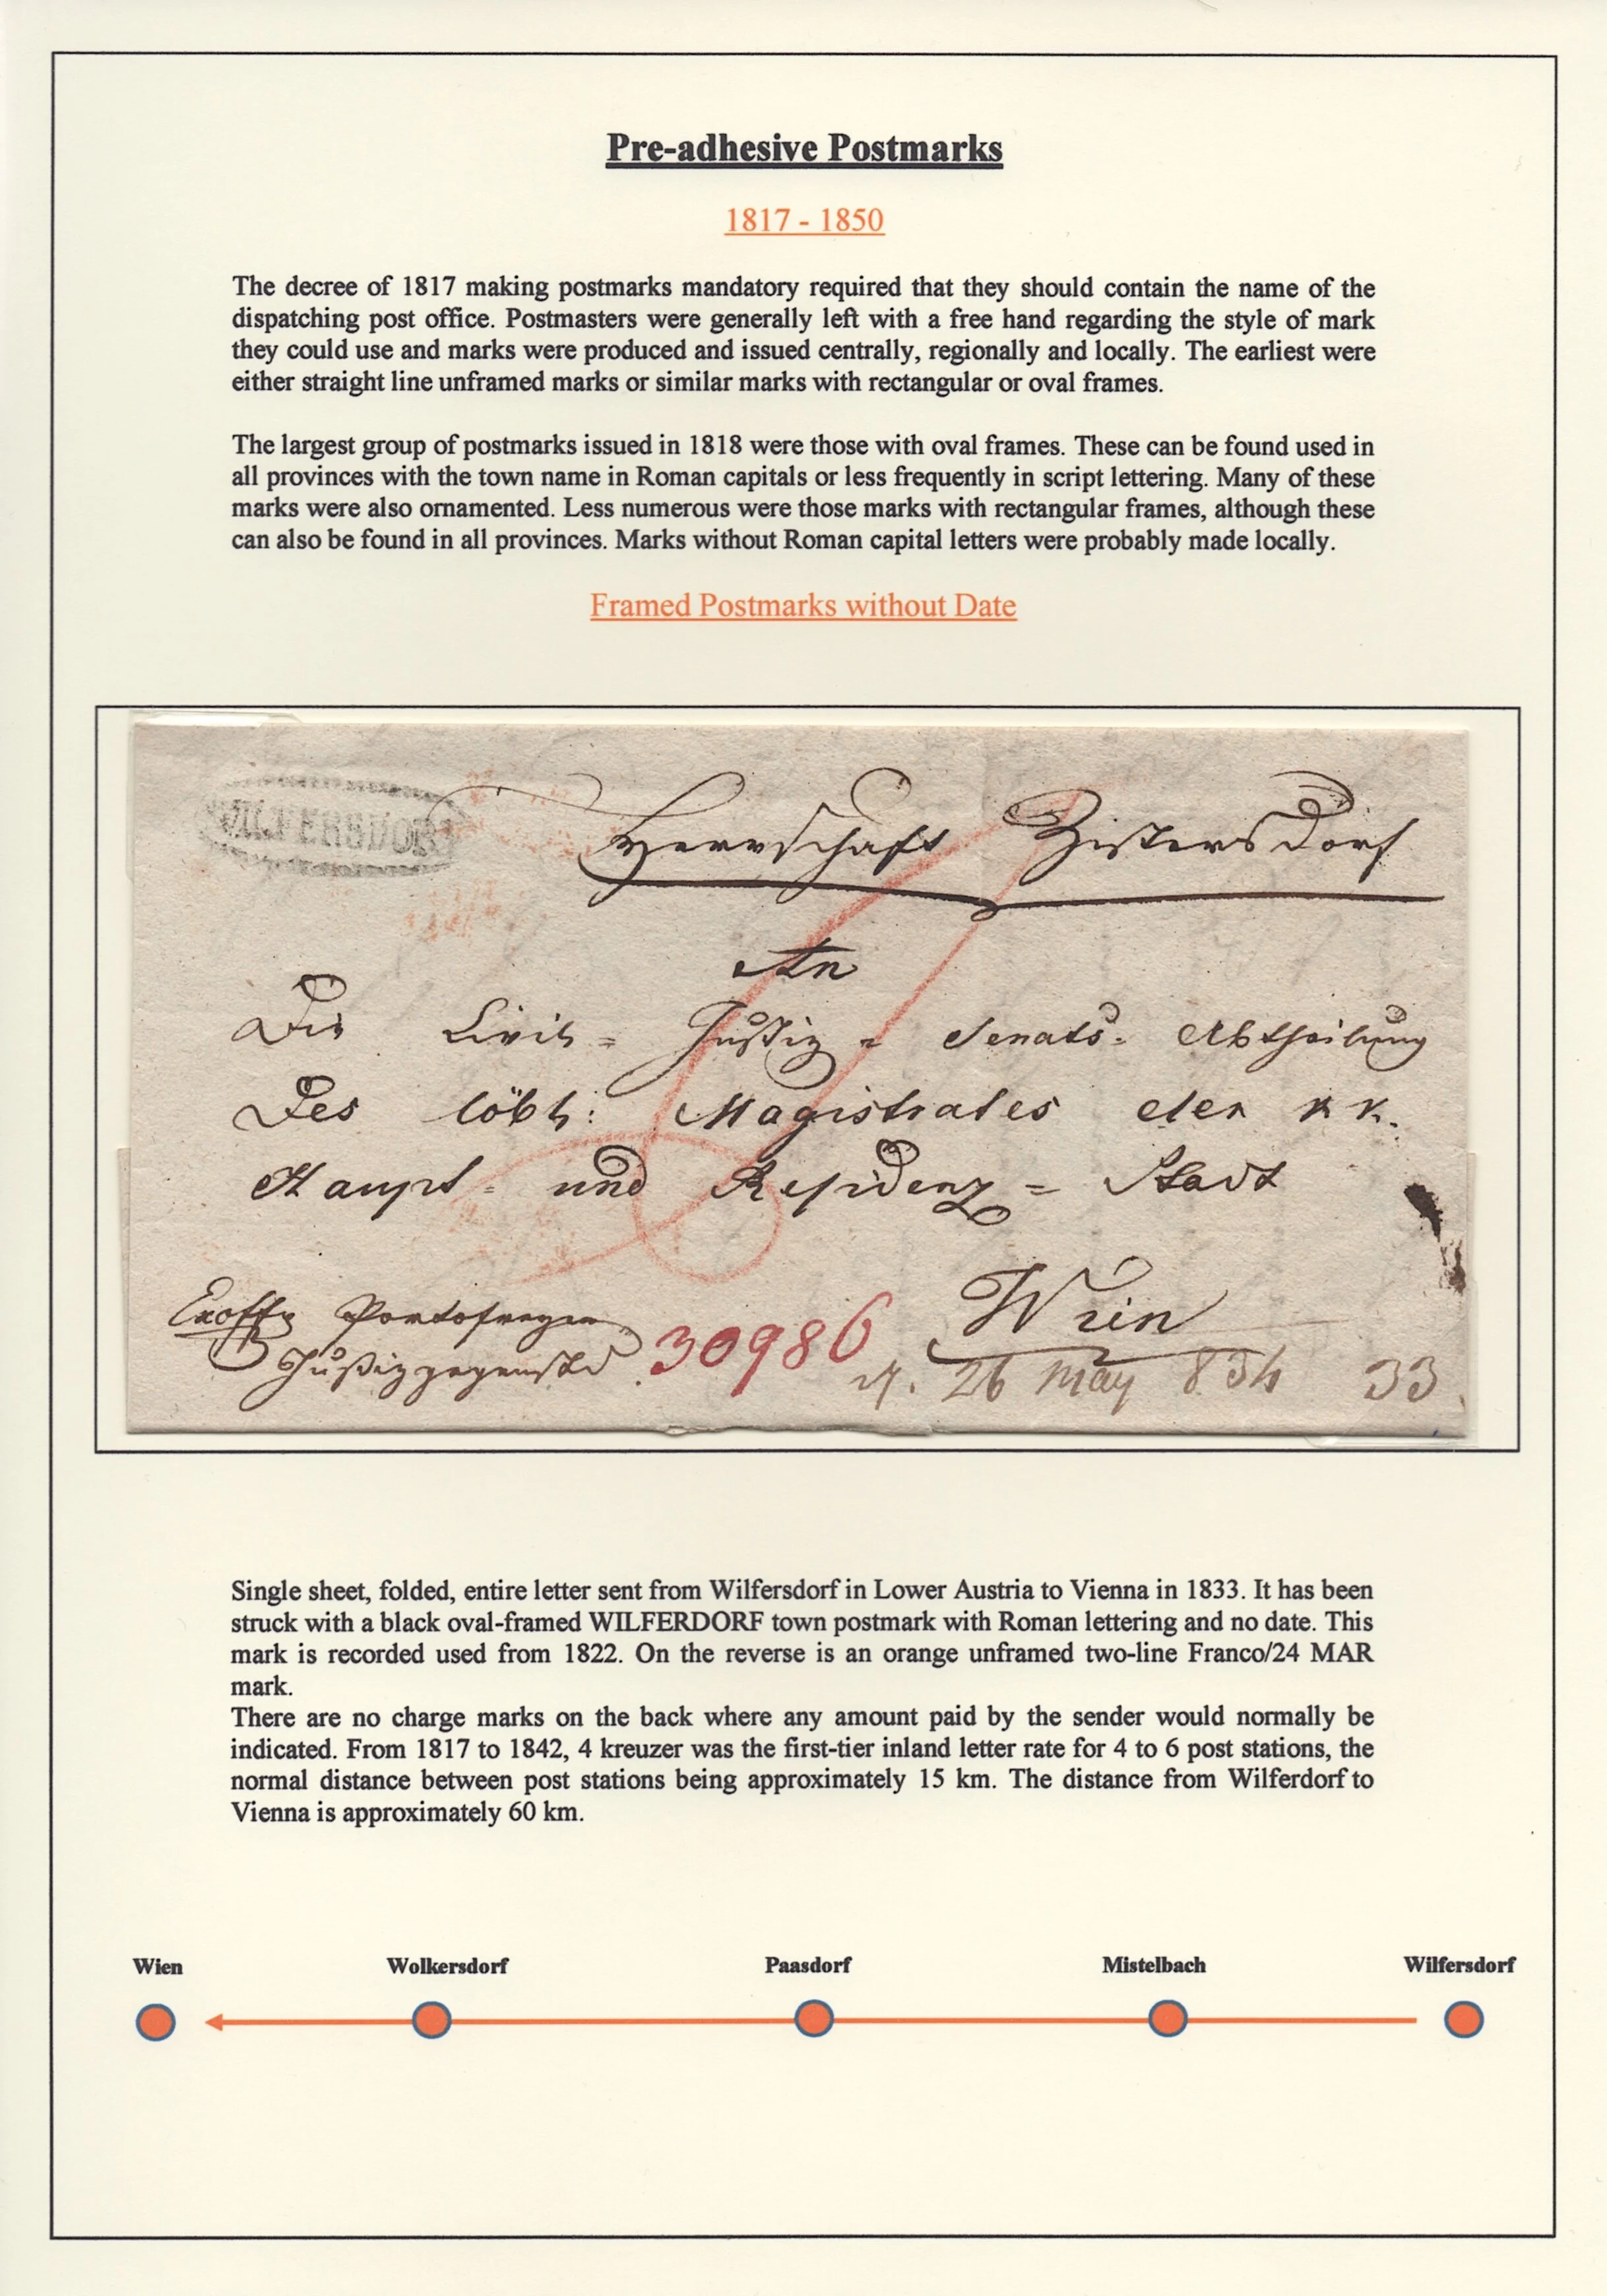 Pre-adhesive Postmarks
1817 - 1850
The decree of 1817 making postmarks mandatory required that they should contain the name of the
dispatching post office. Postmasters were generally left with a free hand regarding the style of mark
they could use and marks were produced and issued centrally, regionally and locally. The earliest were
either straight line unframed marks or similar marks with rectangular or oval frames.
The largest group of postmarks issued in 1818 were those with oval frames. These can be found used in
all provinces with the town name in Roman capitals or less frequently in script lettering. Many of these
marks were also ornamented. Less numerous were those marks with rectangular frames, although these
can also be found in all provinces. Marks without Roman capital letters were probably made locally.
Framed Postmarks without Date
WILFERSDORF
Herrschaft Zistersdorf
An
Die Civil = Justiz = Senats = Abtheilung
Des löbl: Magistrates der k k.
Haupt = und Residenz = Stadt
Wien
Exoffo
30986
26 May 834 33
Single sheet, folded, entire letter sent from Wilfersdorf in Lower Austria to Vienna in 1833. It has been
struck with a black oval-framed WILFERDORF town postmark with Roman lettering and no date. This
mark is recorded used from 1822. On the reverse is an orange unframed two-line Franco/24 MAR
mark.
There are no charge marks on the back where any amount paid by the sender would normally be
indicated. From 1817 to 1842, 4 kreuzer was the first-tier inland letter rate for 4 to 6 post stations, the
normal distance between post stations being approximately 15 km. The distance from Wilferdorf to
Vienna is approximately 60 km.
Wien Wolkersdorf Paasdorf Mistelbach Wilfersdorf